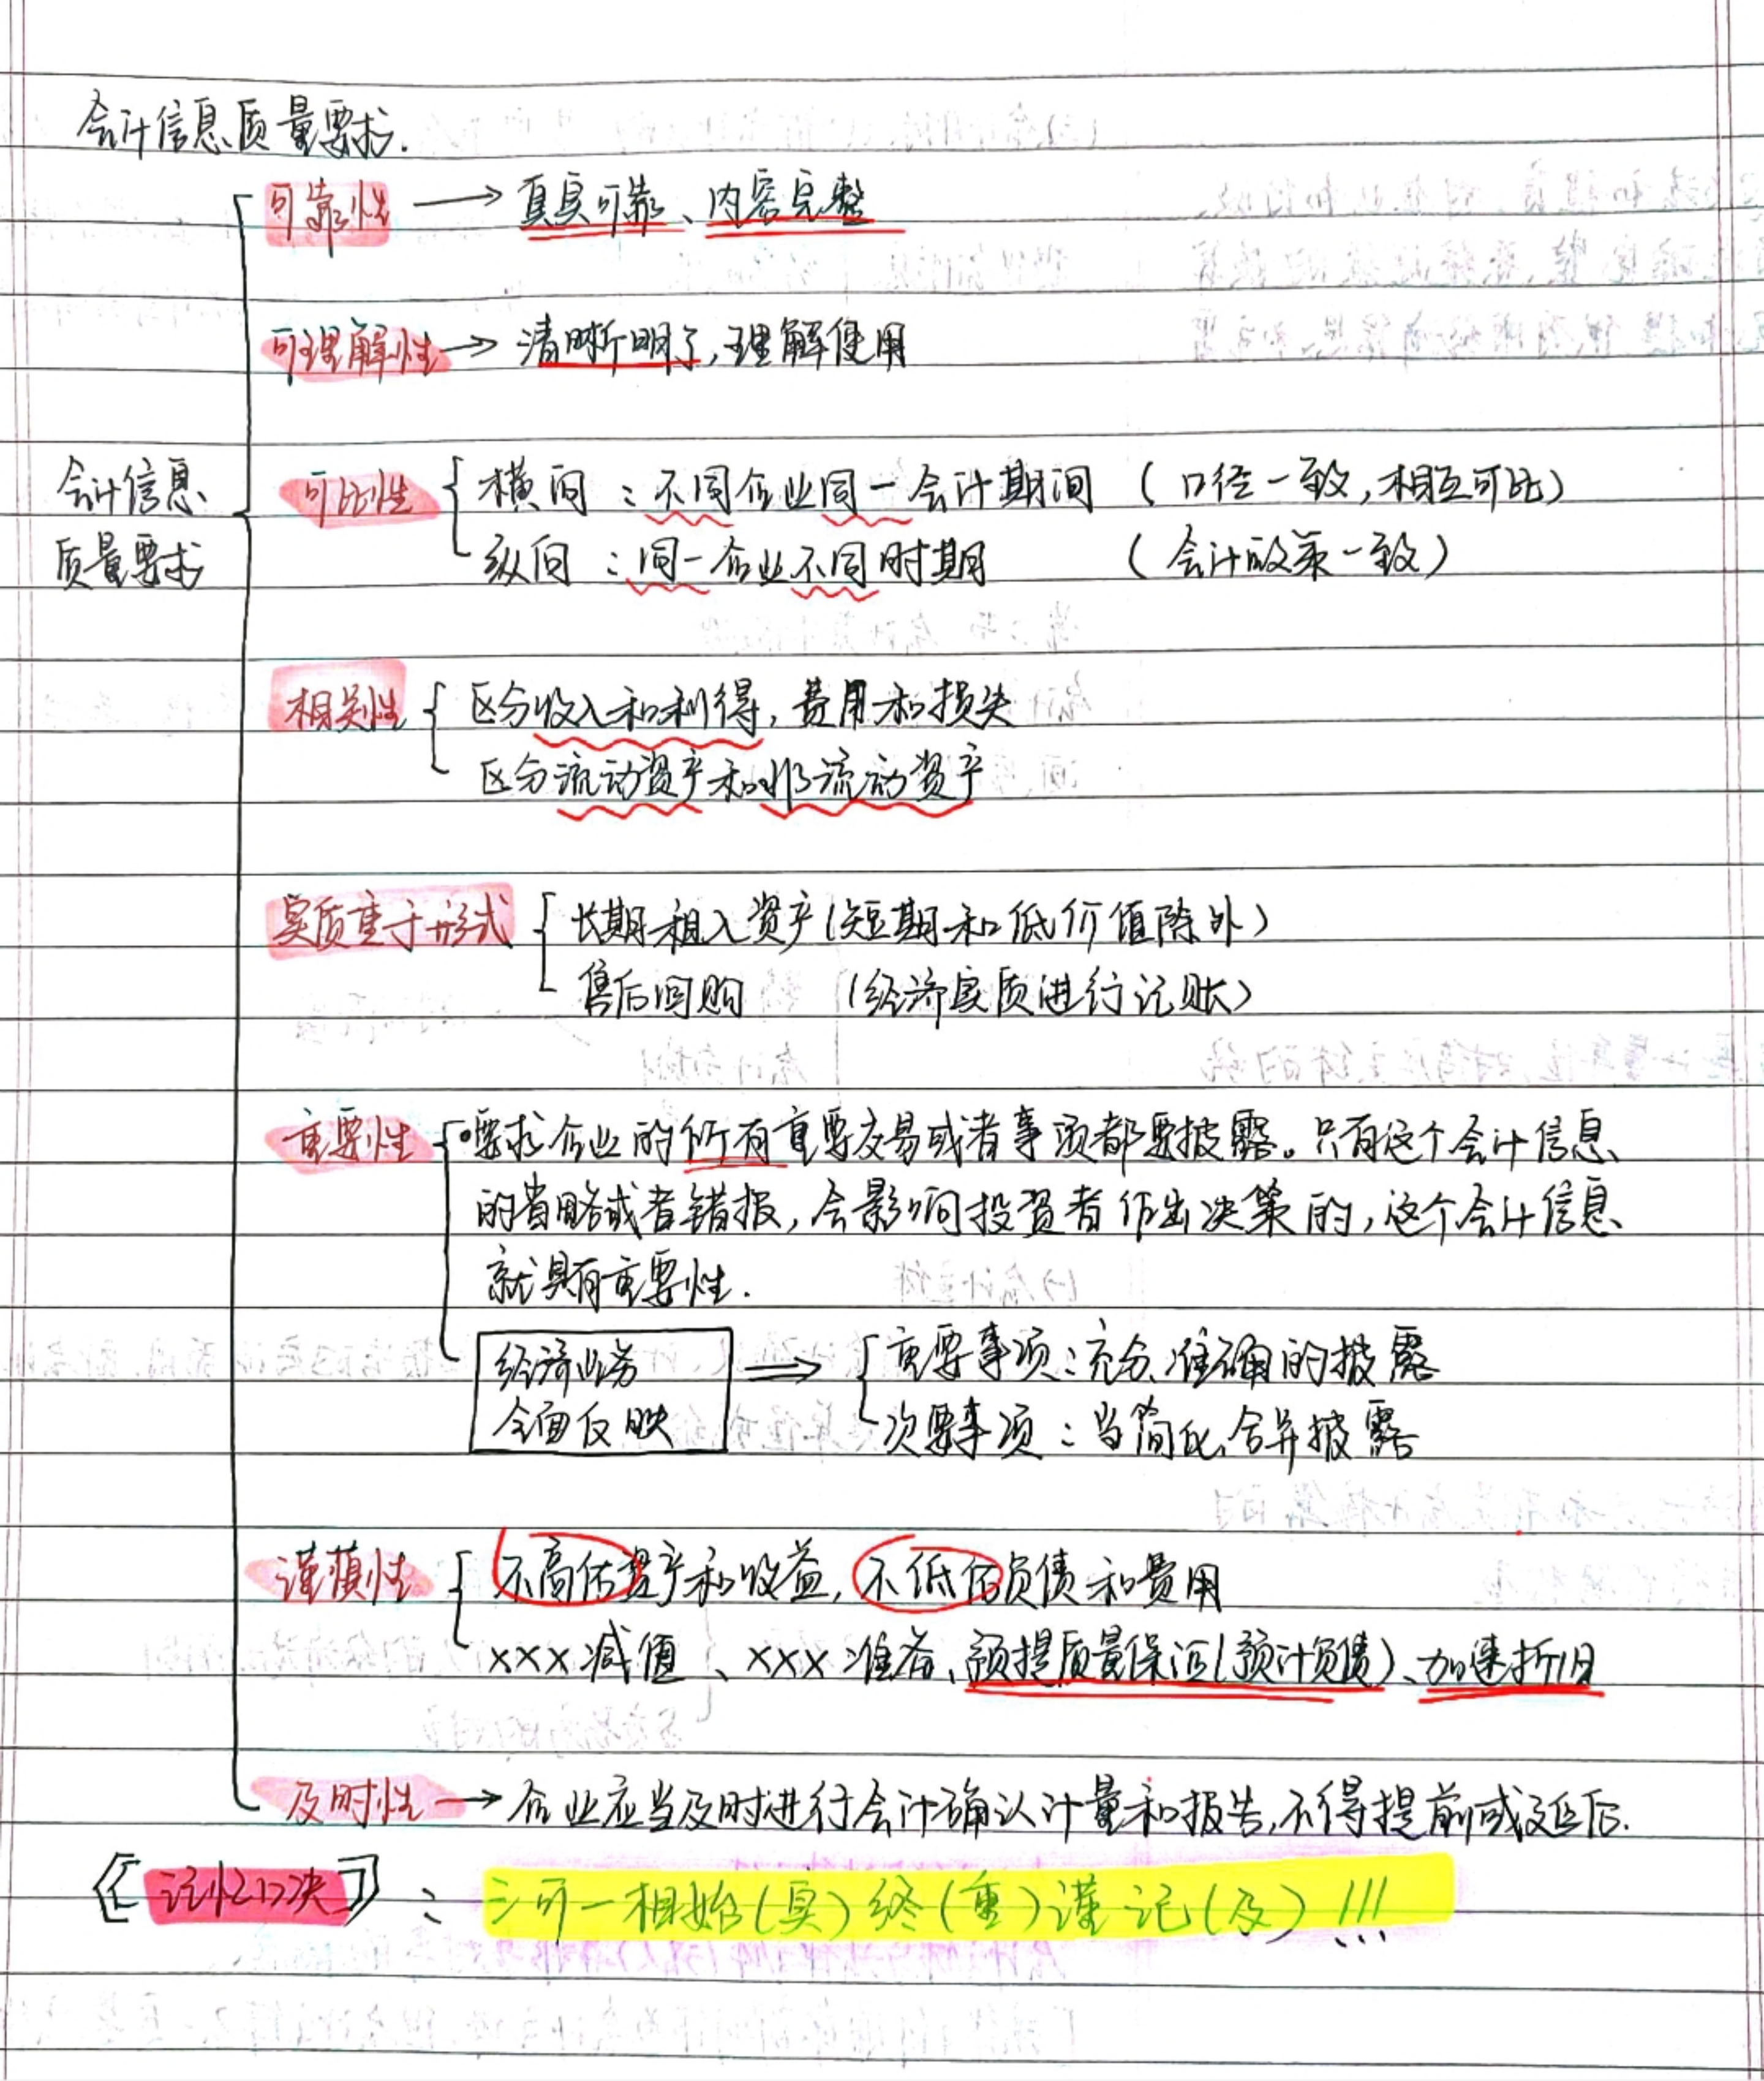 会计信息质量要求.
可靠性 → 真实可靠、内容完整
可理解性 → 清晰明了,理解使用
会计信息质量要求
可比性 横向：不同企业同一会计期间（口径一致,相互可比）
纵向：同一企业不同时期（会计政策一致）
相关性 区分收入和利得,费用和损失
区分流动资产和非流动资产
实质重于形式 长期租入资产(短期和低价值除外)
售后回购 (经济实质进行记账)
重要性 要求企业的所有重要交易或者事项都要披露。只有这个会计信息
的省略或者错报,会影响投资者作出决策的,这个会计信息
就具有重要性.
经济业务 ⇒ 重要事项:充分、准确的披露
全面反映 次要事项：当简化,合并披露
谨慎性 不高估资产和收益,不低估负债和费用
xxx减值、xxx准备、预提质量保证(预计负债)、加速折旧
及时性 → 企业应当及时进行会计确认计量和报告,不得提前或延后.
【记忆口决】：三可一相始(实)终(重)谨记(及)!!!